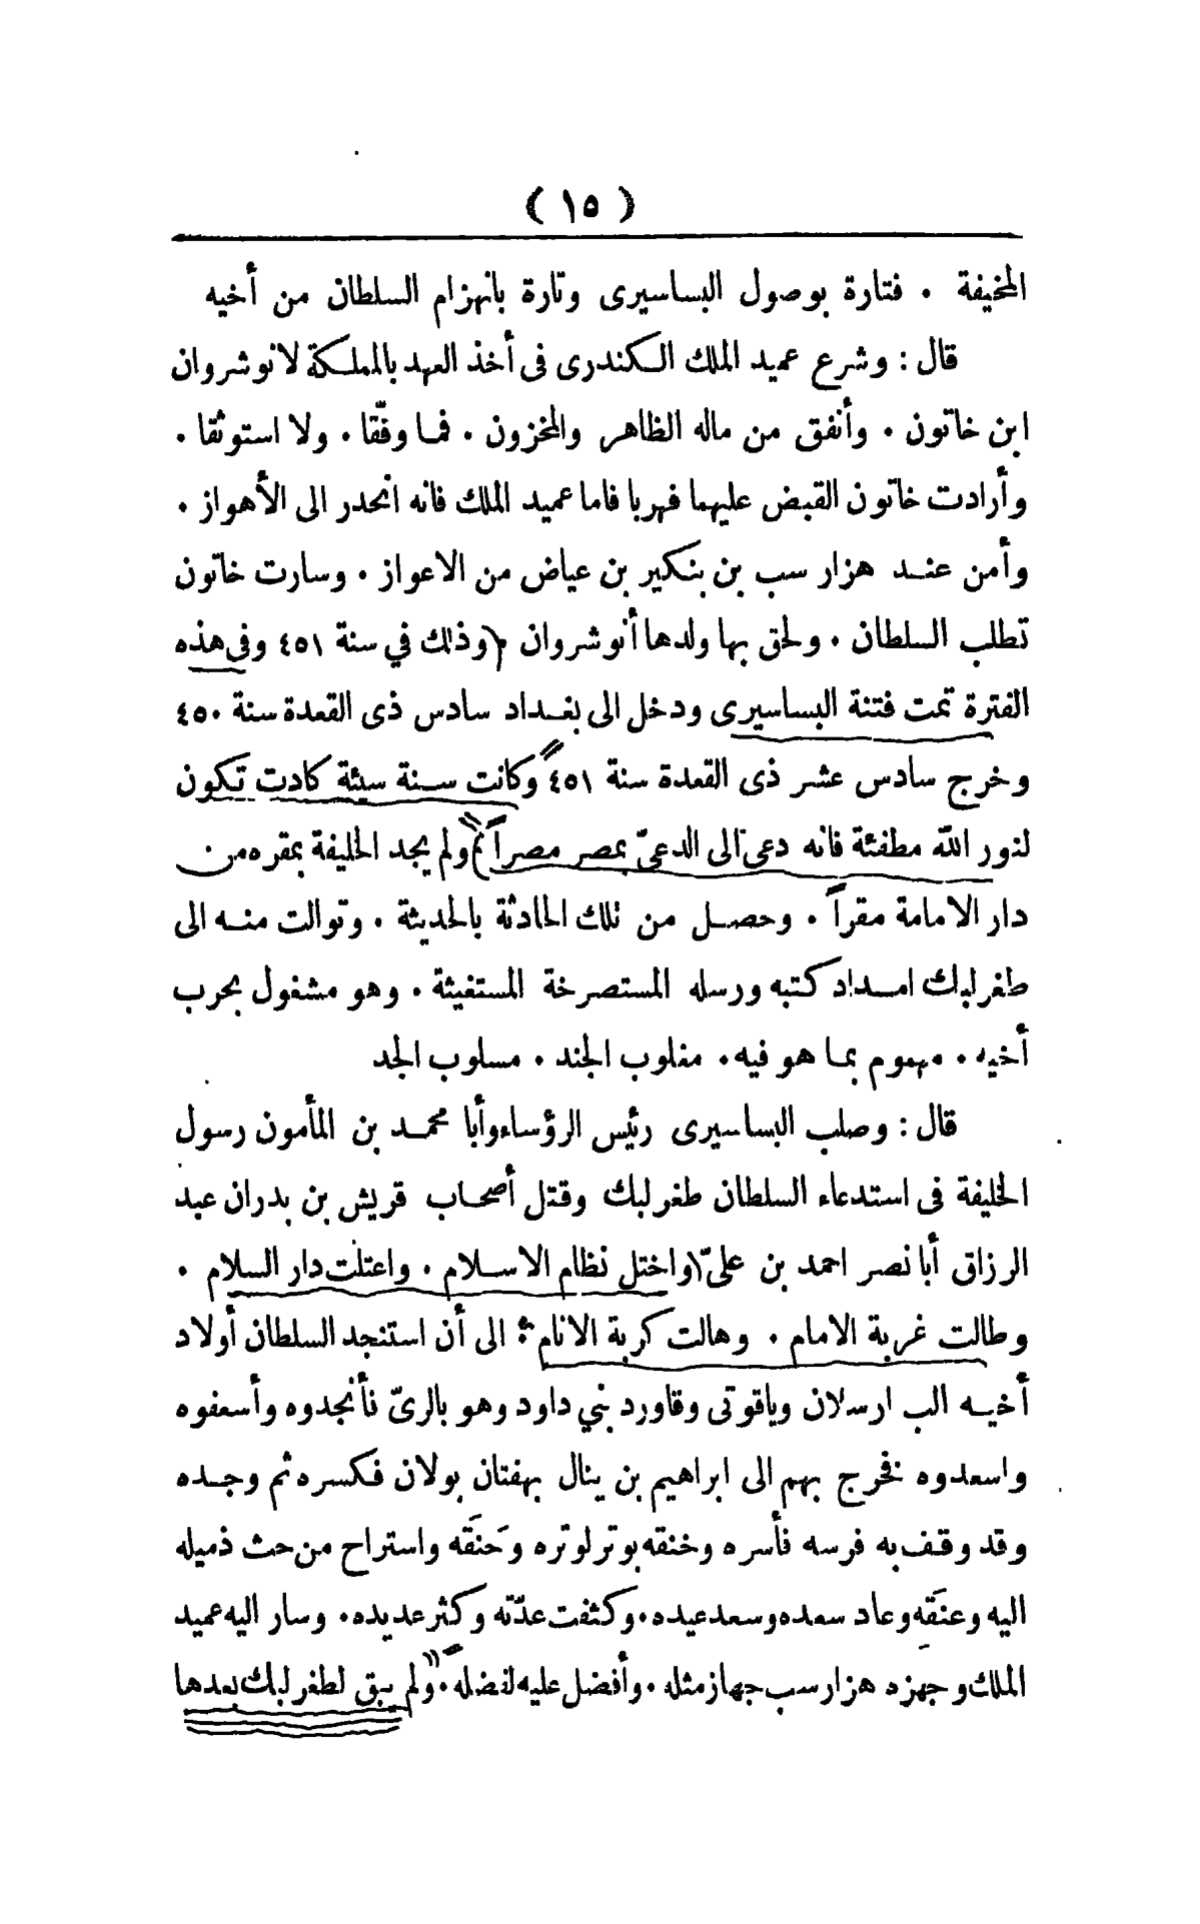 ( ١٥ )
المخيفة . فتارة بوصول البساسيرى وتارة بانهزام السلطان من أخيه
قال : وشرع عميد الملك الكندرى فى أخذ العهد بالمملكة لانوشروان
ابن خاتون . وأنفق من ماله الظاهر والمخزون . فما وفّقا . ولا استوثقا .
وأرادت خاتون القبض عليهما فهربا فاما عميد الملك فانه انحدر الى الأهواز .
وأمن عند هزار سب بن بنكير بن عياض من الاعواز . وسارت خاتون
تطلب السلطان . ولحق بها ولدها أنوشروان (وذلك في سنة ٤٥١ وفى هذه
الفترة تمت فتنة البساسيرى ودخل الى بغداد سادس ذى القعدة سنة ٤٥٠
وخرج سادس عشر ذى القعدة سنة ٤٥١ وكانت سنة سيئة كادت تكون
لنور الله مطفئة فانه دعى الى الدعىّ بمصر مصراً ) ولم يجد الخليفة بمقره من
دار الامامة مقراً . وحصل من تلك الحادثة بالحديثة . وتوالت منه الى
طغرلبك امداد كتبه ورسله المستصرخة المستغيثة . وهو مشغول بحرب
أخيه . مهموم بما هو فيه . مغلوب الجند . مسلوب الجد
قال : وصلب البساسيرى رئيس الرؤساء وأبا محمد بن المأمون رسول
الخليفة فى استدعاء السلطان طغرلبك وقتل أصحاب قريش بن بدران عبد
الرزاق أبا نصر احمد بن علىّ واختل نظام الاسلام . واعتلت دار السلام .
وطالت غربة الامام . وهالت كربة الانام . الى أن استنجد السلطان أولاد
أخيه الب ارسلان وياقوتى وقاورد بني داود وهو بالرىّ فأنجدوه وأسعفوه
واسعدوه فخرج بهم الى ابراهيم بن ينال بهفتان بولان فكسره ثم وجده
وقد وقف به فرسه فأسره وخنقه بوتر لوتره وَحَنَقه واستراح من حث ذميله
اليه وعنَقه وعاد سعده وسعد عيده . وكثفت عدّته وكثر عديده . وسار اليه عميد
الملك وجهزه هزارسب جهاز مثله . وأفضل عليه لفضله . ولم يبق لطغرلبك بعدها